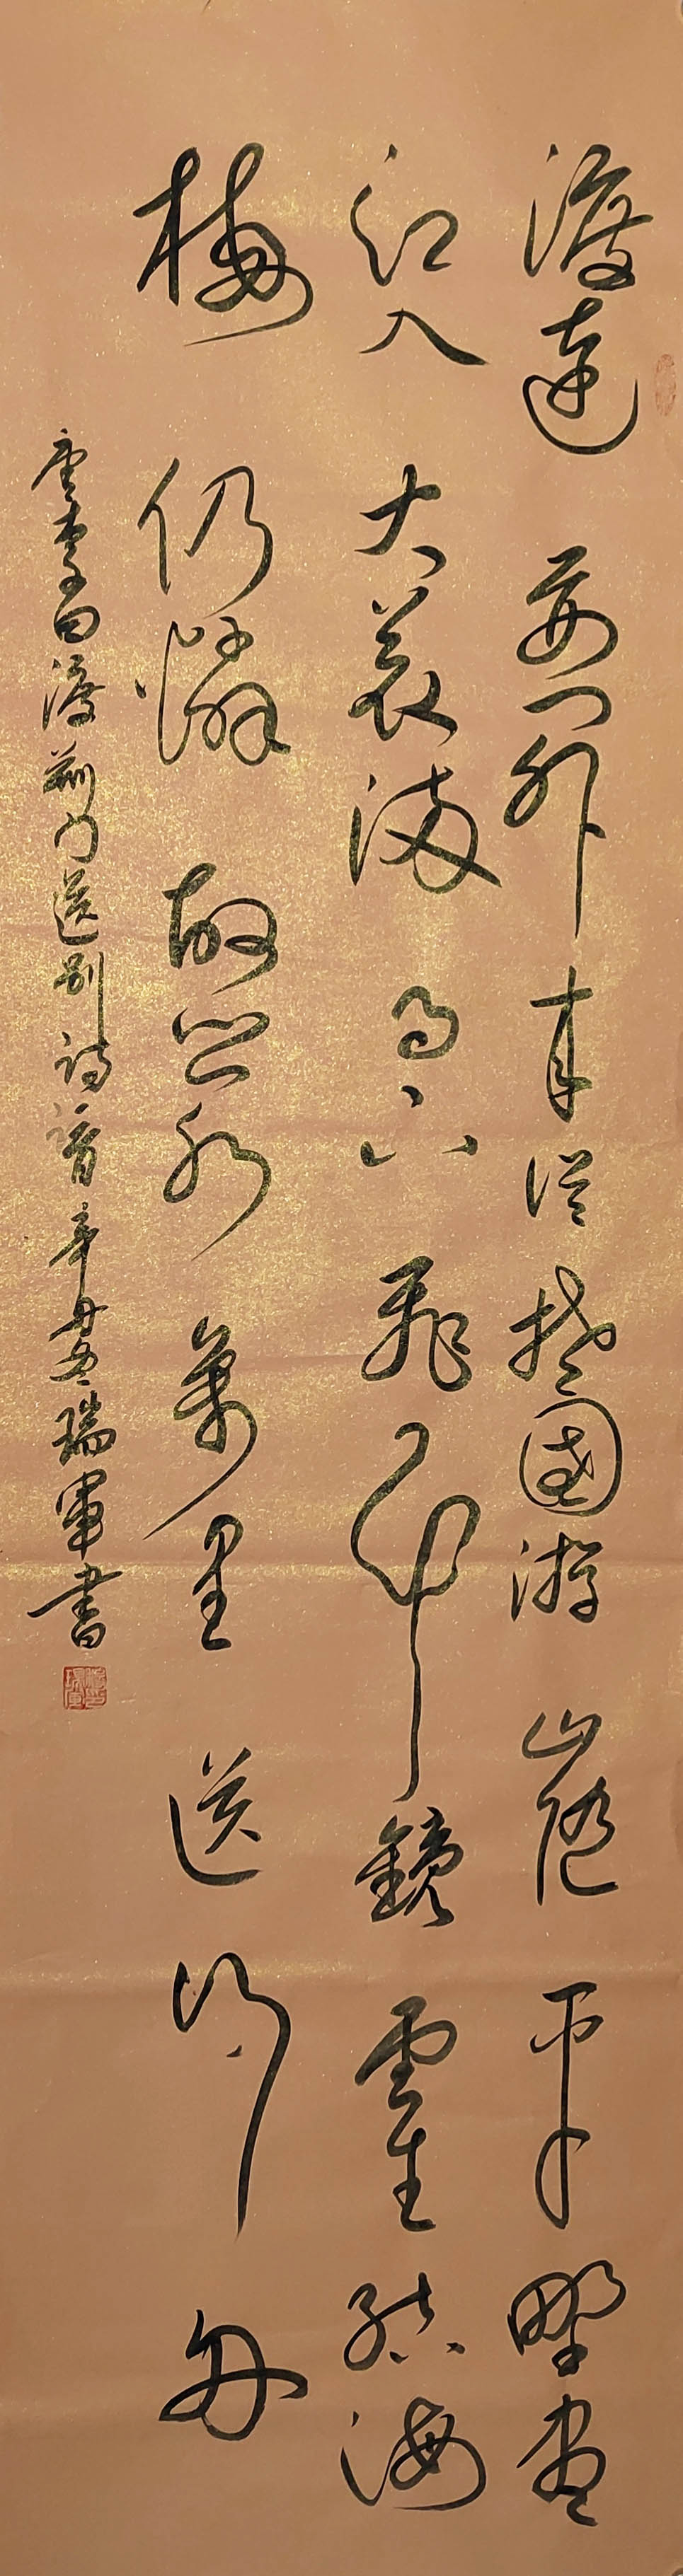 渡遠荊門外來從楚國游山隨平野盡
江入大荒流月下飛天鏡雲生結海
樓仍憐故鄉水萬里送行舟
唐李白渡荊門送別詩一首辛丑冬瑞軍書